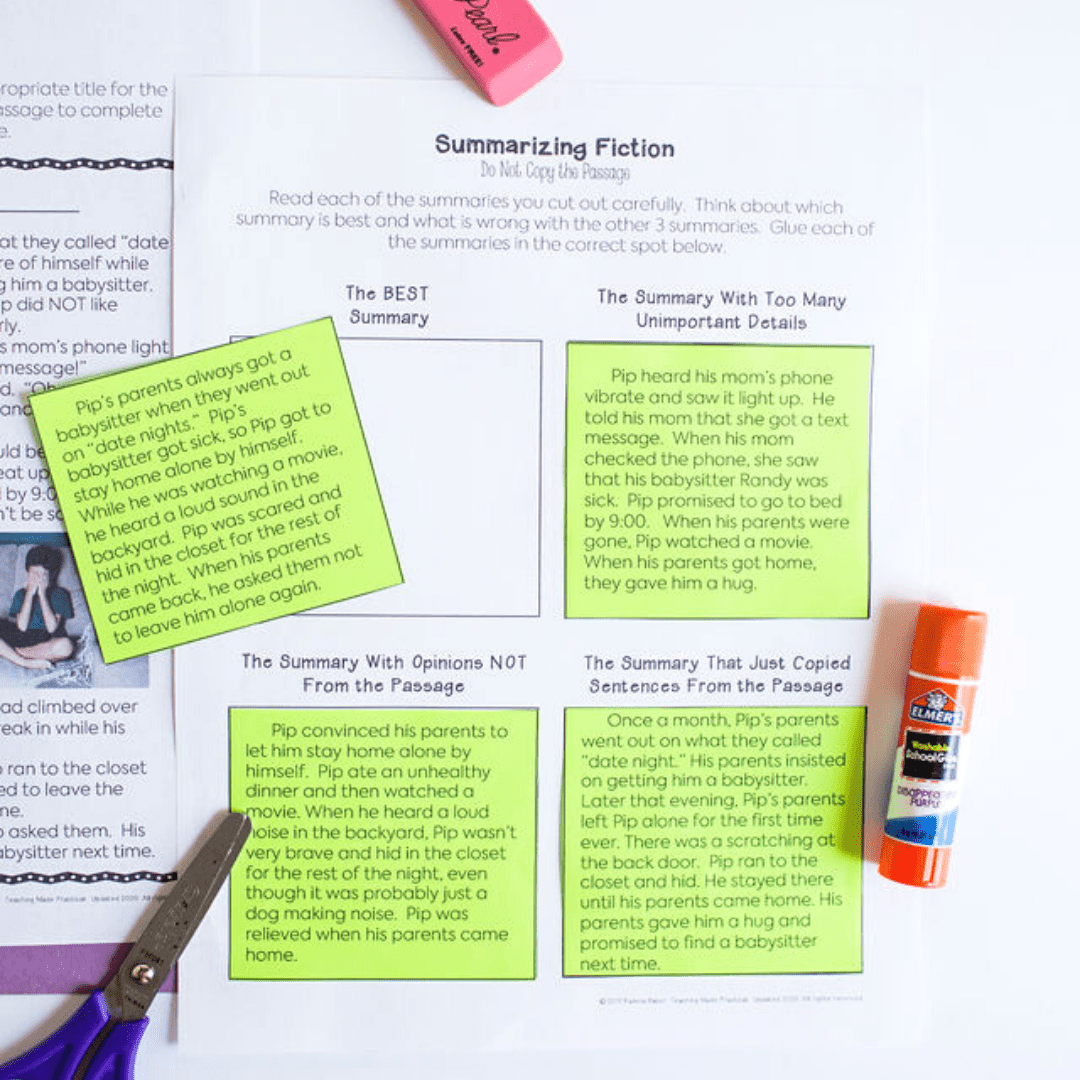 Pearl.
ropriate title for the
assage to complete
e.
at they called “date
re of himself while
g him a babysitter.
p did NOT like
rly.
s mom’s phone light
message!”
d. “Oh
and
uld be
eat up
by 9:0
n’t be so
ad climbed over
eak in while his
o ran to the closet
ed to leave the
ne.
o asked them. His
abysitter next time.
Teaching Made Practical. Updated 2020. All
Summarizing Fiction
Do Not Copy the Passage
Read each of the summaries you cut out carefully. Think about which
summary is best and what is wrong with the other 3 summaries. Glue each of
the summaries in the correct spot below.
The BEST
Summary
Pip’s parents always got a
babysitter when they went out
on “date nights.” Pip’s
babysitter got sick, so Pip got to
stay home alone by himself.
While he was watching a movie,
he heard a loud sound in the
backyard. Pip was scared and
hid in the closet for the rest of
the night. When his parents
came back, he asked them not
to leave him alone again.
The Summary With Too Many
Unimportant Details
Pip heard his mom’s phone
vibrate and saw it light up. He
told his mom that she got a text
message. When his mom
checked the phone, she saw
that his babysitter Randy was
sick. Pip promised to go to bed
by 9:00. When his parents were
gone, Pip watched a movie.
When his parents got home,
they gave him a hug.
The Summary With Opinions NOT
From the Passage
Pip convinced his parents to
let him stay home alone by
himself. Pip ate an unhealthy
dinner and then watched a
movie. When he heard a loud
noise in the backyard, Pip wasn’t
very brave and hid in the closet
for the rest of the night, even
though it was probably just a
dog making noise. Pip was
relieved when his parents came
home.
The Summary That Just Copied
Sentences From the Passage
Once a month, Pip’s parents
went out on what they called
“date night.” His parents insisted
on getting him a babysitter.
Later that evening, Pip’s parents
left Pip alone for the first time
ever. There was a scratching at
the back door. Pip ran to the
closet and hid. He stayed there
until his parents came home. His
parents gave him a hug and
promised to find a babysitter
next time.
Teaching Made Practical. Updated 2020. All rights reserved.
ELMER'S
Washable
School Glue
DISAPPEARING
PURPLE